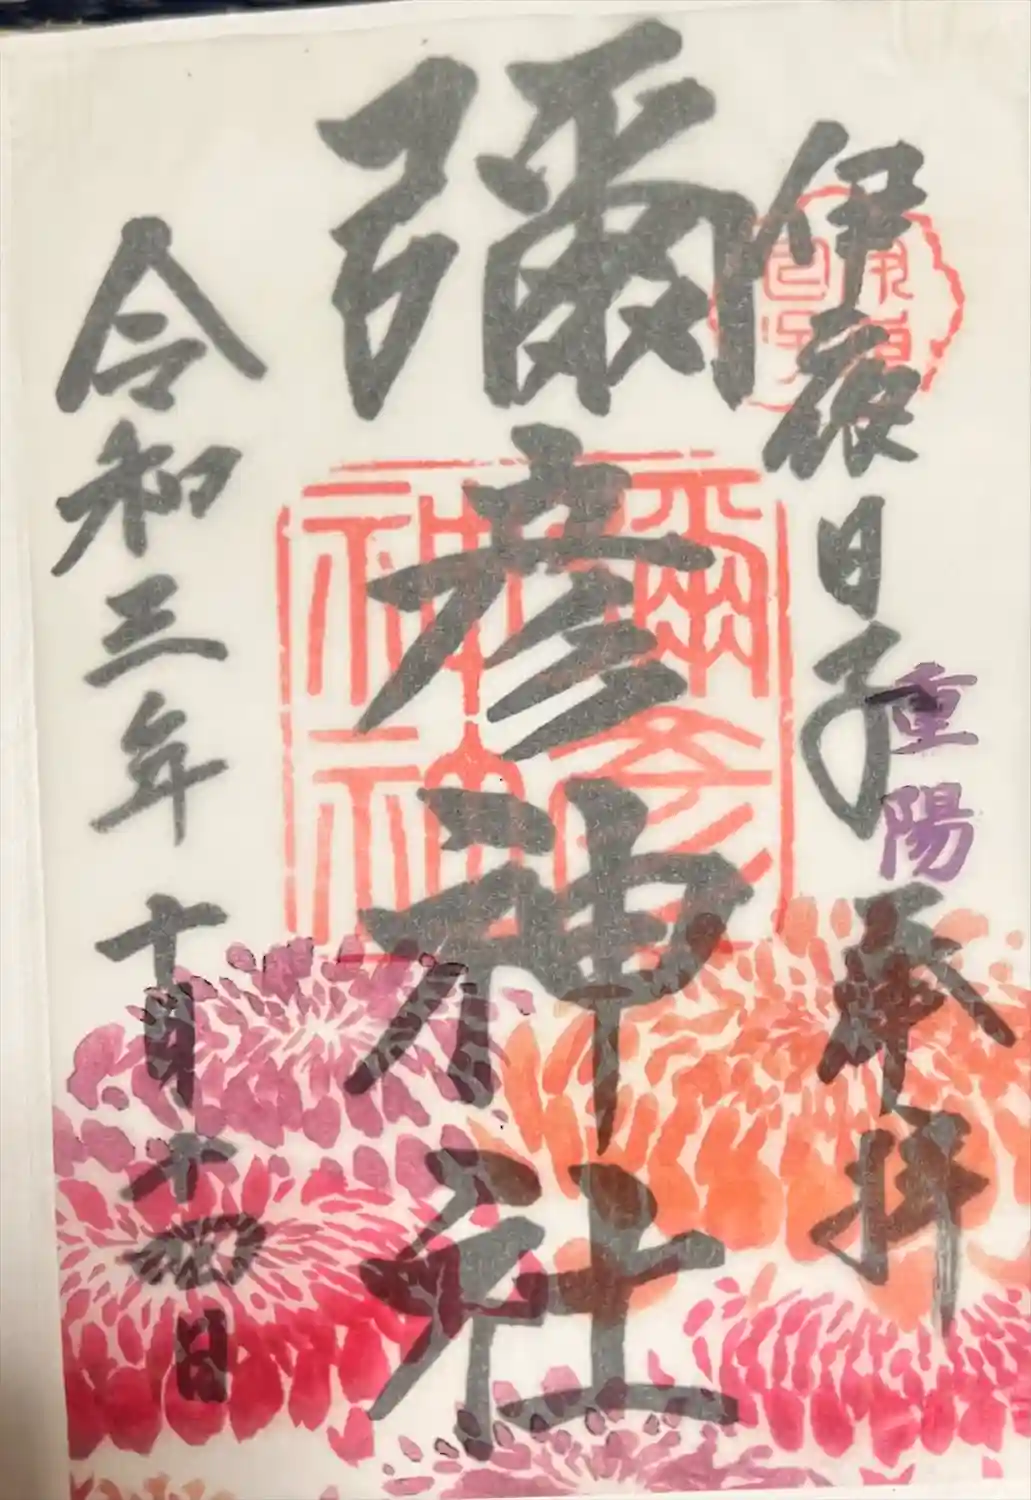 伊夜日子
重陽
奉拝
彌彦神社
令和三年十月十四日